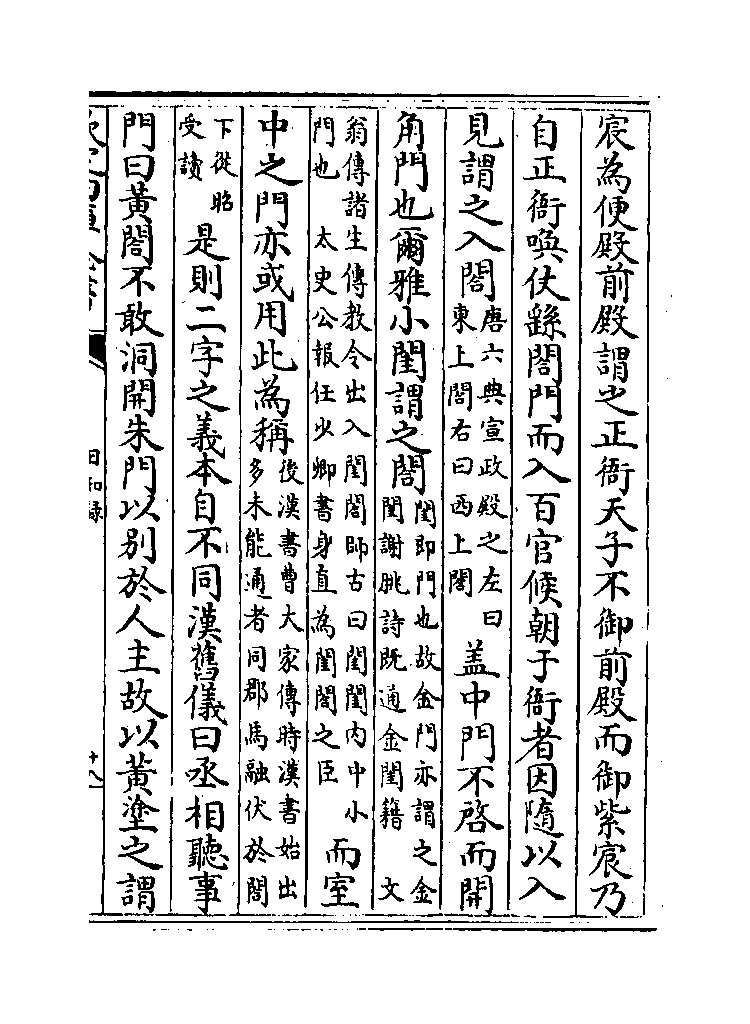 宸為便殿前殿謂之正衙天子不御前殿而御紫宸乃
自正衙喚仗繇閤門而入百官候朝于衙者因隨以入
見謂之入閤唐六典宣政殿之左曰東上閤右曰西上閤盖中門不啓而開
角門也爾雅小閨謂之閤閨即門也故金門亦謂之金閨謝朓詩既通金閨籍 文
翁傳諸生傳教令出入閨閤師古曰閨閤内中小門也 太史公報任少卿書身直為閨閤之臣而室
中之門亦或用此為稱後漢書曹大家傳時漢書始出多未能通者同郡馬融伏於閤
下從昭受讀是則二字之義本自不同漢舊儀曰丞相聽事
門曰黃閤不敢洞開朱門以别於人主故以黃塗之謂
日知録